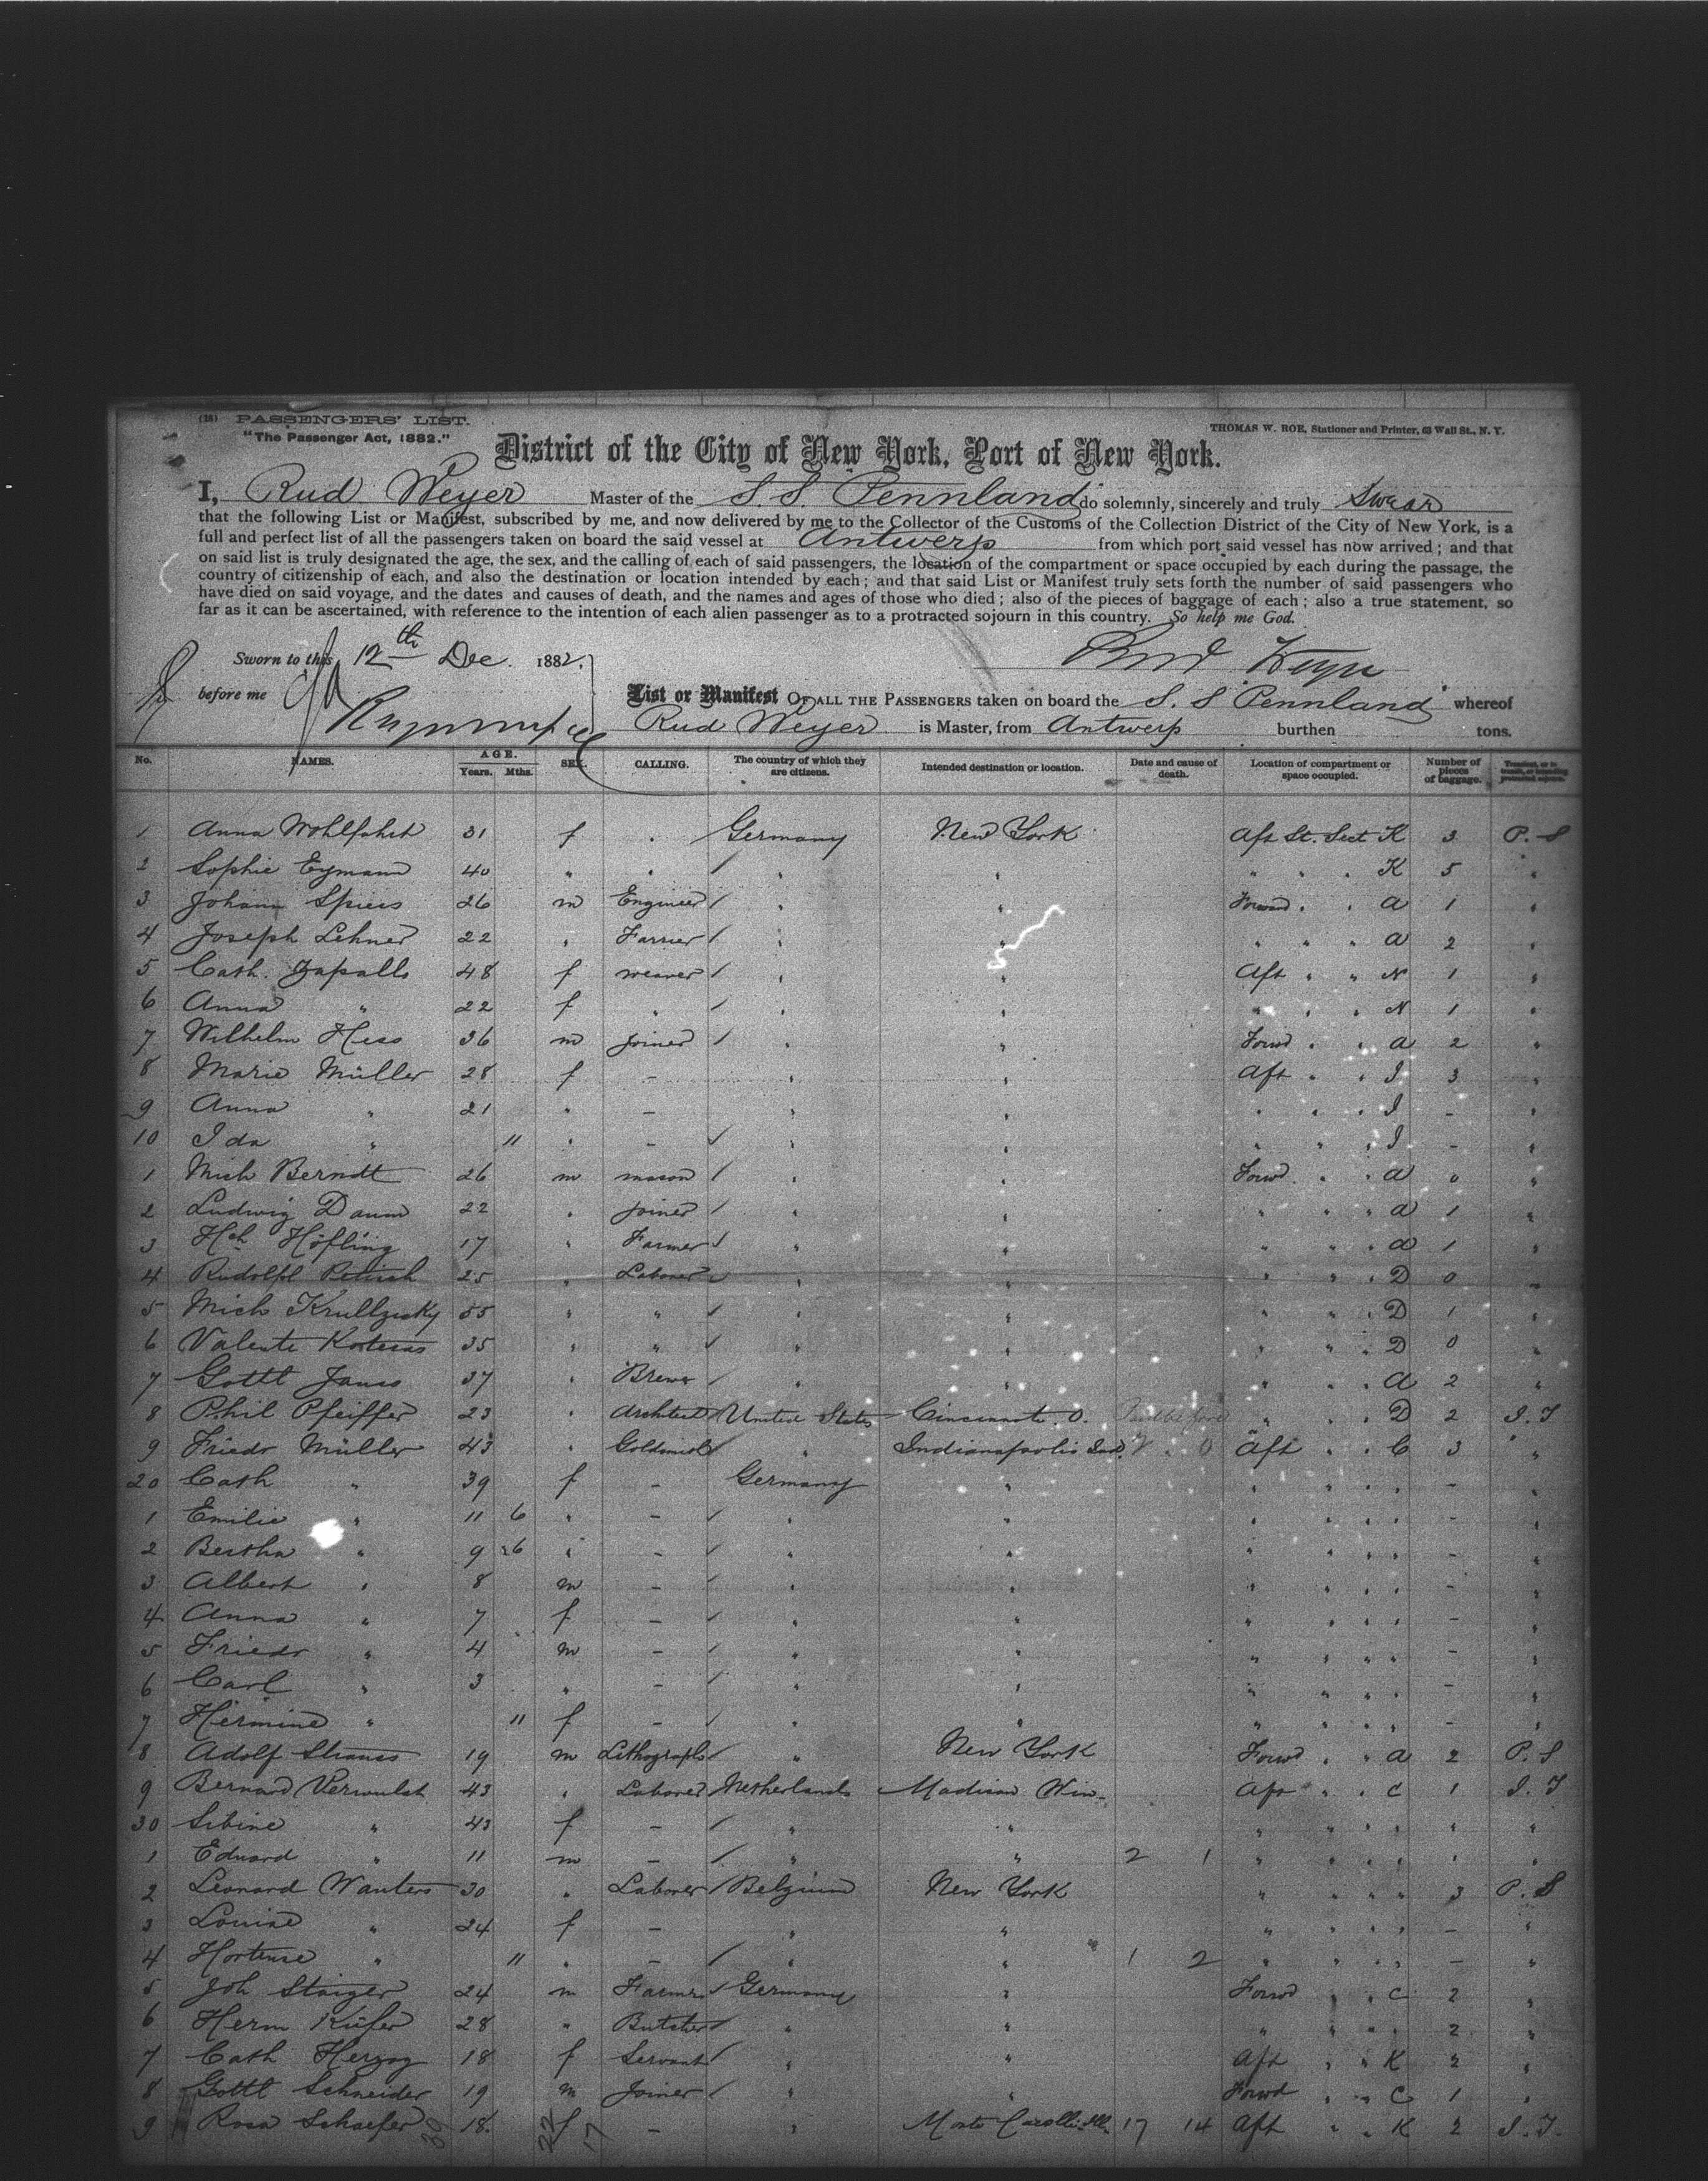 (18) PASSENGERS' LIST.
"The Passenger Act, 1882."
THOMAS W. ROE, Stationer and Printer, 63 Wall St., N. Y.
District of the City of New York, Port of New York.
I, Rud Weyer Master of the S. S. Pennland do solemnly, sincerely and truly Swear
that the following List or Manifest, subscribed by me, and now delivered by me to the Collector of the Customs of the Collection District of the City of New York, is a
full and perfect list of all the passengers taken on board the said vessel at Antwerp from which port said vessel has now arrived; and that
on said list is truly designated the age, the sex, and the calling of each of said passengers, the location of the compartment or space occupied by each during the passage, the
country of citizenship of each, and also the destination or location intended by each; and that said List or Manifest truly sets forth the number of said passengers who
have died on said voyage, and the dates and causes of death, and the names and ages of those who died; also of the pieces of baggage of each; also a true statement, so
far as it can be ascertained, with reference to the intention of each alien passenger as to a protracted sojourn in this country. So help me God.
Sworn to this 12th Dec. 1882,
before me
List or Manifest OF ALL THE PASSENGERS taken on board the S. S Pennland whereof
Rud Weyer is Master, from Antwerp burthen tons.
No. NAMES. AGE. Years. Mths. SEX. CALLING. The country of which they are citizens. Intended destination or location. Date and cause of death. Location of compartment or space occupied. Number of pieces of baggage. Transient, or in transit, or intending protracted sojourn.
1 Anna Wohlfahrt 31 f Germany New York Aft St. Sect K 3 P. S
2 Sophie Eymann 40 " " " " " " K 5 "
3 Johann Spiess 26 m Engineer " " Forward " " a 1 "
4 Joseph Lehner 22 " Farrier " " " " " a 2 "
5 Cath. 48 f weaver " " Aft " " N 1 "
6 Anna " 22 f " " " " " " N 1 "
7 Wilhelm Hess 36 m Joiner " " Forwd " " a 2 "
8 Marie Müller 28 f - " " Aft " " I 3 "
9 Anna " 21 " - " " " " " I - "
10 Ida " 11 " - " " " " " I - "
1 Mich Berndt 26 m mason " " Forwd " " a 0 "
2 Ludwig Daum 22 " Joiner " " " " " a 1 "
3 Hch Höfling 17 " Farmer " " " " " a 1 "
4 Rudolf 25 " Laborer " " " " " D 0 "
5 Mich 55 " " " " " " " D 1 "
6 Valenti 35 " " " " " " " D 0 "
7 Gottl 37 " Brewer " " " " " a 2 "
8 Phil Pfeiffer 23 " Architect United States Cincinnati. O. " " " D 2 I. T
9 Friedr Müller 43 " Goldsmith " Indianapolis Ind. Aft " " C 3 "
20 Cath " 39 f - Germany " " " " " - "
1 Emilie " 11 6 " - " " " " " " - "
2 Bertha " 9 6 " - " " " " " " - "
3 Albert " 8 m - " " " " " " - "
4 Anna " 7 f - " " " " " " - "
5 Friedr " 4 m - " " " " " " - "
6 Carl " 3 " - " " " " " " - "
7 Hermine " 11 f - " " " " " " - "
8 Adolf Strauss 19 m Lithograph " New York Forwd " " a 2 P. S
9 Bernard Verwulst 43 " Laborer Netherlands Madison Win. Aft " " C 1 I. T
30 Sibine " 43 f - " " " " " " " "
1 Eduard " 11 m - " " 2 1 " " " " " "
2 Leonard Wauters 30 " Laborer Belgium New York " " " " 3 P. S
3 Louise " 24 f - " " " " " " - "
4 Hortense " 11 " - " " 1 2 " " " " - "
5 Joh Staiger 24 m Farmer Germany " Forwd " " C 2 "
6 Herm Küfer 28 " Butcher " " " " " " 2 "
7 Cath Herzog 18 f Servant " " Aft " " K 2 "
8 Gottl Schneider 19 m Joiner " " Forwd " " C 1 "
9 Rosa Schaefer 18 f - " 17 14 Aft " " K 2 I. T.
39 22 17